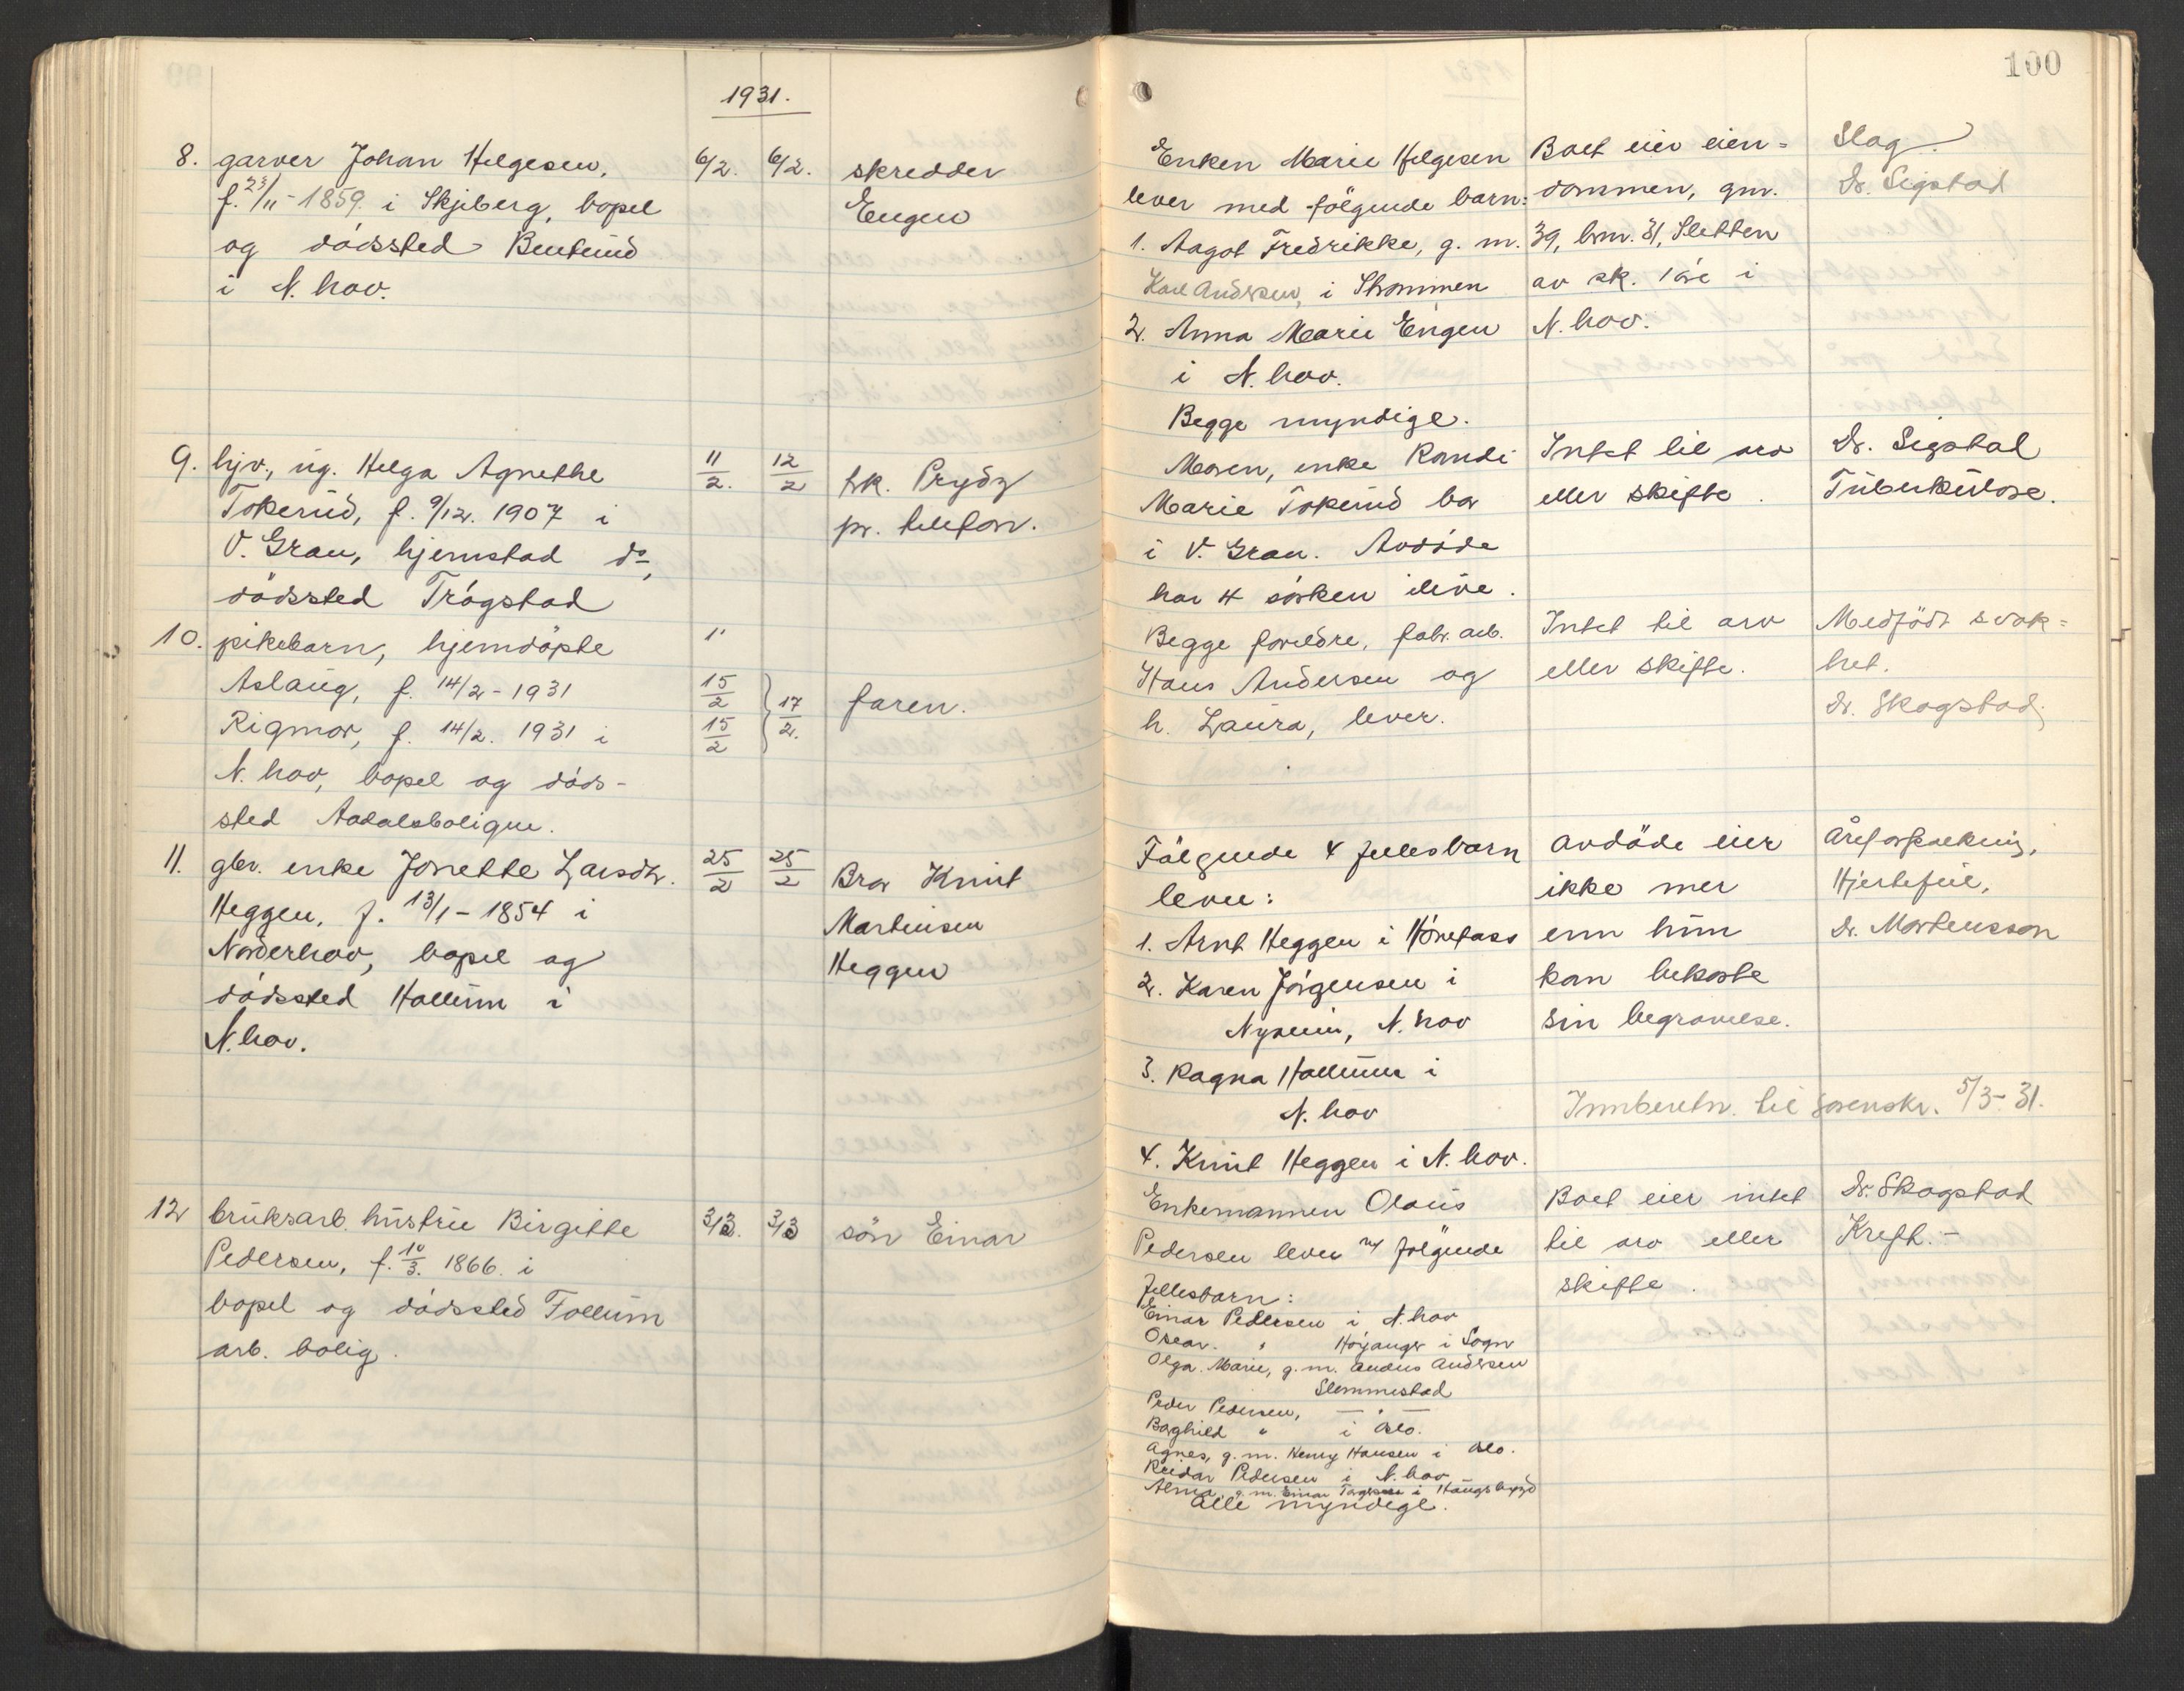 1931.
8. garver Johan Helgesen,
f. 23/11 - 1859. i Skjeberg, bopel
og dødssted Benterud
i N. hov.
6/2. 6/2. skredder
Engen
9. hjv., ug. Helga Agnethe
Tokerud, f. 9/12. 1907 i
V. Gran, hjemstad do,
dødssted Trögstad
11/2. 12/2 hk. Prydz
pr. telefon.
10. pikebarn, hjemdøpte
Aslaug, f. 14/2 - 1931
Rigmor, f. 14/2. 1931 i
N. hov, bopel og døds-
sted Aadalsboligne.
"
15/2
15/2 } 17/2. faren.
11. gbr. enke Jonette Larsdtr.
Heggen, f. 13/1 - 1854 i
Norderhov, bopel og
dødssted Hallum i
N. hov.
25/2 25/2 Bror Knut
Martinsen
Heggen
12 bruksarb. hustru Birgitte
Pedersen, f. 10/3. 1866. i
bopel og dødssted Follum
arb. bolig.
3/3. 3/3 søn Einar
100
Enken Marie Helgesen
lever med følgende barn:
1. Aagot Fredrikke, g. m.
Karl Andersen, i Strømmen
2. Anna Marie Engen
i N. hov.
Begge myndige.
Boet eier eien=
dommen, gnr.
39, bnr. 81, Sletten
av sk. i
N. hov.
Slag.
Dr. Sigstad
Moren, enke Randi
Marie Tokerud bor
i V. Gran. Avdøde
har 4 søsken ilive.
Intet til arv
eller skifte.
Dr. Sigstad
Tuberkulose.
Begge foreldre, fabr. arb.
Hans Andersen og
h. Laura, lever.
Intet til arv
eller skifte.
Medfødt svak=
het.
Dr. Skogstad.
Følgende 4 fellesbarn
lever:
1. Arnt Heggen i Hönefoss
2. Karen Jörgensen i
N. hov
3. Ragna Hallum i
N. hov
4. Knut Heggen i N. hov.
avdøde eier
ikke mer
enn hun
kan bekoste
sin begravelse.
Innberetn. til sorenskr. 5/3 - 31.
Åreforkalkning,
Hjertefeil,
Dr. Mortensson
Enkemannen Olaus
Pedersen lever m/ følgende
fellesbarn:
Einar Pedersen i N. hov
Oscar. " Höyanger i Sogn
Olga Marie, g. m. Andersen
Slemmestad
Peder Pedersen, — " —
Borghild " i Oslo.
Agnes, g. m. Henry Hansen i Oslo.
Reidar Pedersen i N. hov
Alma, g. m. Einar i Haugsbygd
Alle myndige.
Boet eier intet
til arv eller
skifte.
Dr. Skogstad
Kreft. -